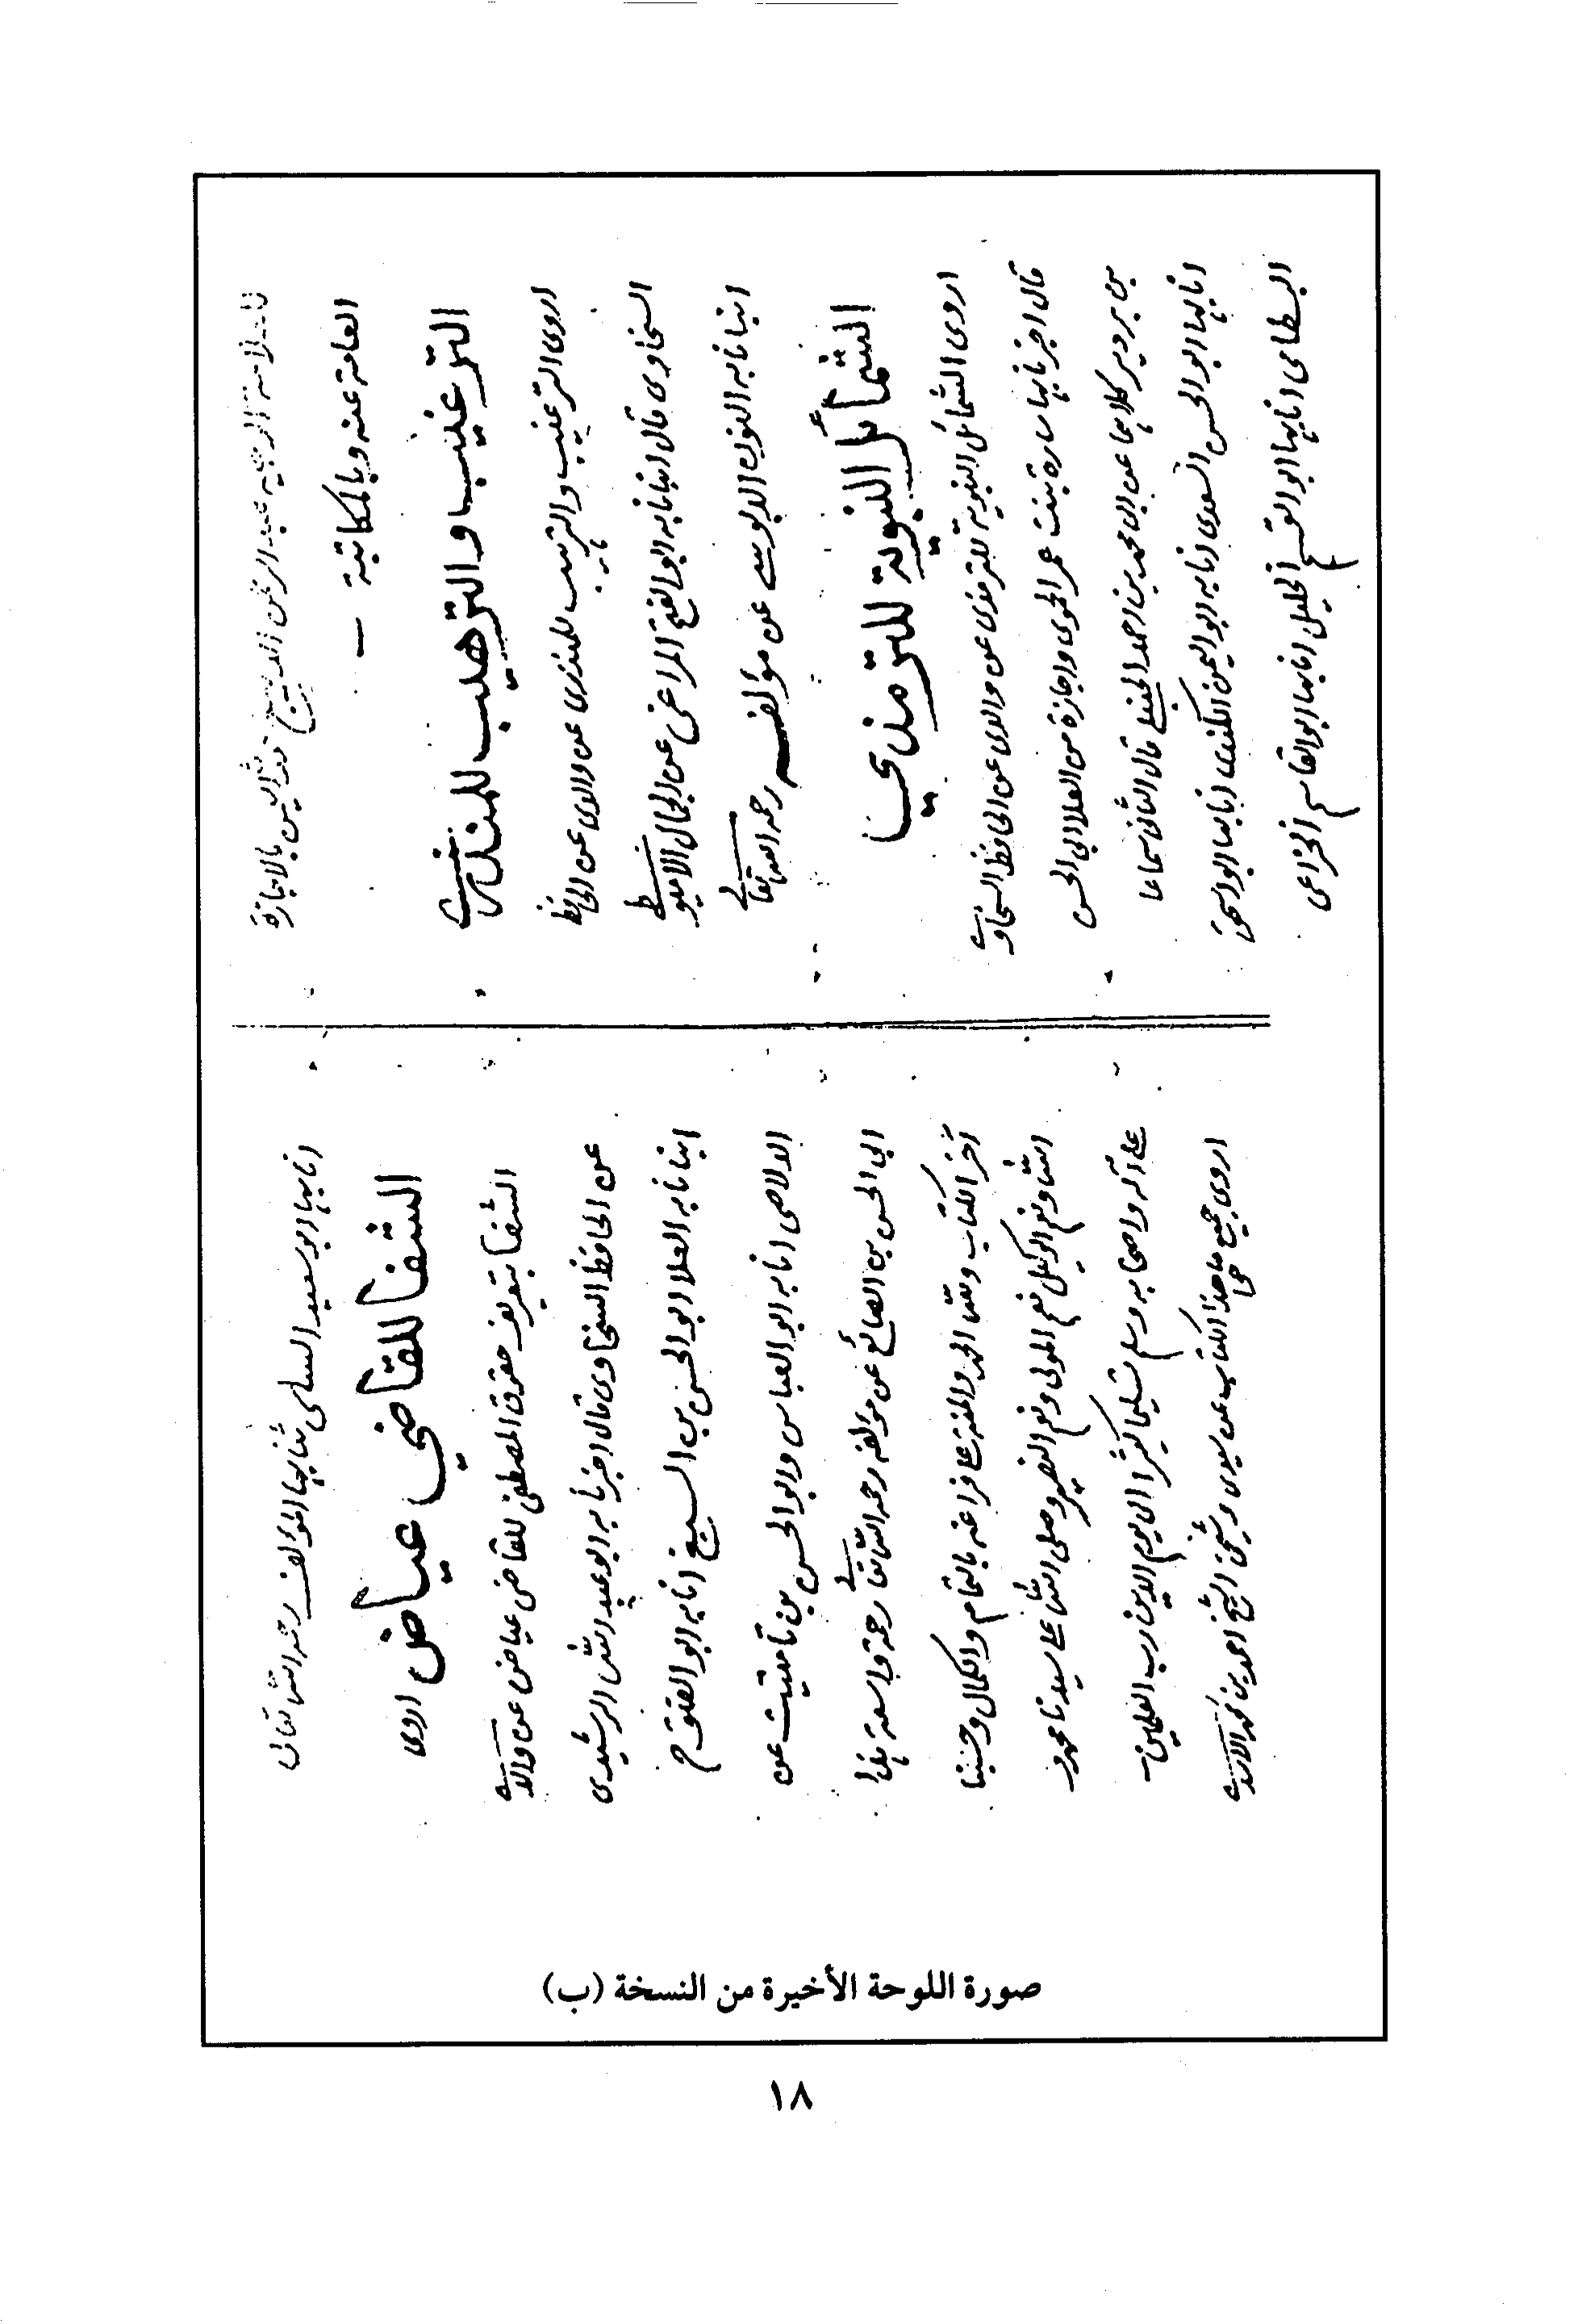 للعلامة الوجيه عبد الرحمن الديبع تغمد الله بالاجازة
العامة عنه وبالمكاتبة
الترغيب والترهيب للمنذري
اروى الترغيب والترهيب للمنذرى عن والدى عن الحافظ
السخاوى قال انبانا به ابو الفتح المراغى عن الجمال الاميوطي
انبانا به النور الدبوسي عن مؤلفه رحمه الله تعالى
الشمائل النبوية للترمذي
اروى الشمائل النبوية للترمذى عن والدى عن الحافظ السخاوي
قال اخبرتنا بها سارة بنت عمر الحموى واجازة من العلا ابي الحسن
بن بردس كلاهما عن ابى محمد بن احمد قال الثانى سماعا
انا بها ابو الحسن السعدى انا به ابو اليمن الكندى انا بها ابو
البسطامى انا بها ابو القسم الخليلى انا بها ابو القاسم الخزاعى
انا بها ابو سعيد الشاشى ثنا بها المؤلف رحمه الله تعالى
الشفا للقاضي عياض اروى
الشفا بتعريف حقوق المصطفى للقاضى عياض عن والدي
عن الحافظ السخاوى قال اخبرنا به ابو عبد الله الرشيدى
انبانا به العلا ابو الحسن بن السبع انا به ابو الفتوح
الدلاصى انا به ابو العباس وابو الحسن بن تامتيت عن
ابي الحسن بن الصائغ عن مؤلفه رحمه الله تعالى رحمة واسعة
آخر الكتاب ولله الحمد والمنة على فراغه بالتمام والكمال وحسبنا
الله ونعم الوكيل نعم المولى ونعم النصير وصلى الله على سيدنا محمد و
على آله واصحابه وسلم تسليما كثيرا الى يوم الدين رب العلمين
اروى جميع ما هذا الكتاب عن سيدى وشيخى الشيخ احمد بن محمد
صورة اللوحة الأخيرة من النسخة (ب)
١٨